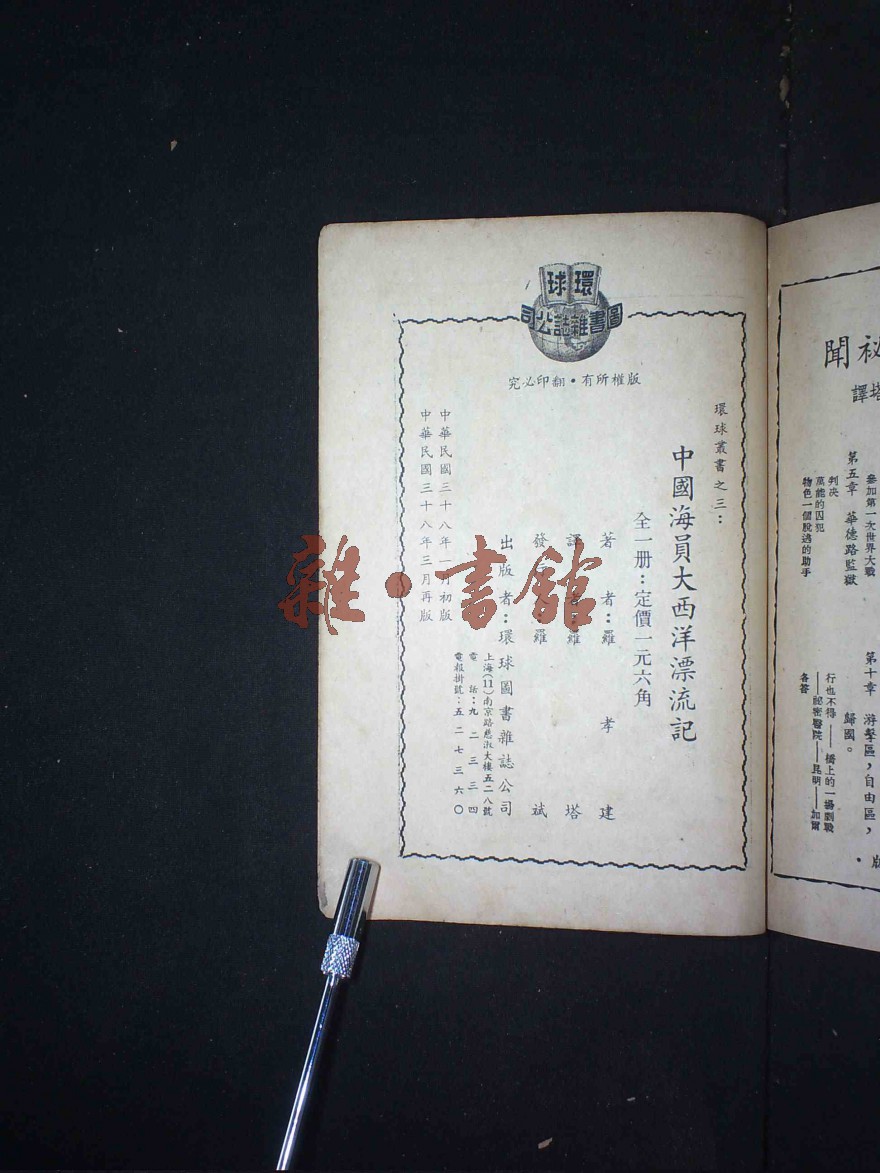 環球
圖書雜誌公司
版權所有・翻印必究
環球叢書之三：
中國海員大西洋漂流記
全一册：定價一元六角
著者：羅孝建
譯者：羅塔
發行：羅斌
出版者：環球圖書雜誌公司
上海(11)南京路慈淑大樓五二八號
電話：九二三三四
電報掛號：五二七三六〇
中華民國三十八年一月初版
中華民國三十八年三月再版
雜・書館
祕聞
塔譯
參加第一次世界大戰
第五章 華德路監獄
判决
萬能的囚犯
物色一個脫逃的助手
第十章 游擊區，自由區，
歸國。
行也不得——橋上的一場劇戰
——祕密醫院——昆明——加爾
各答
版・